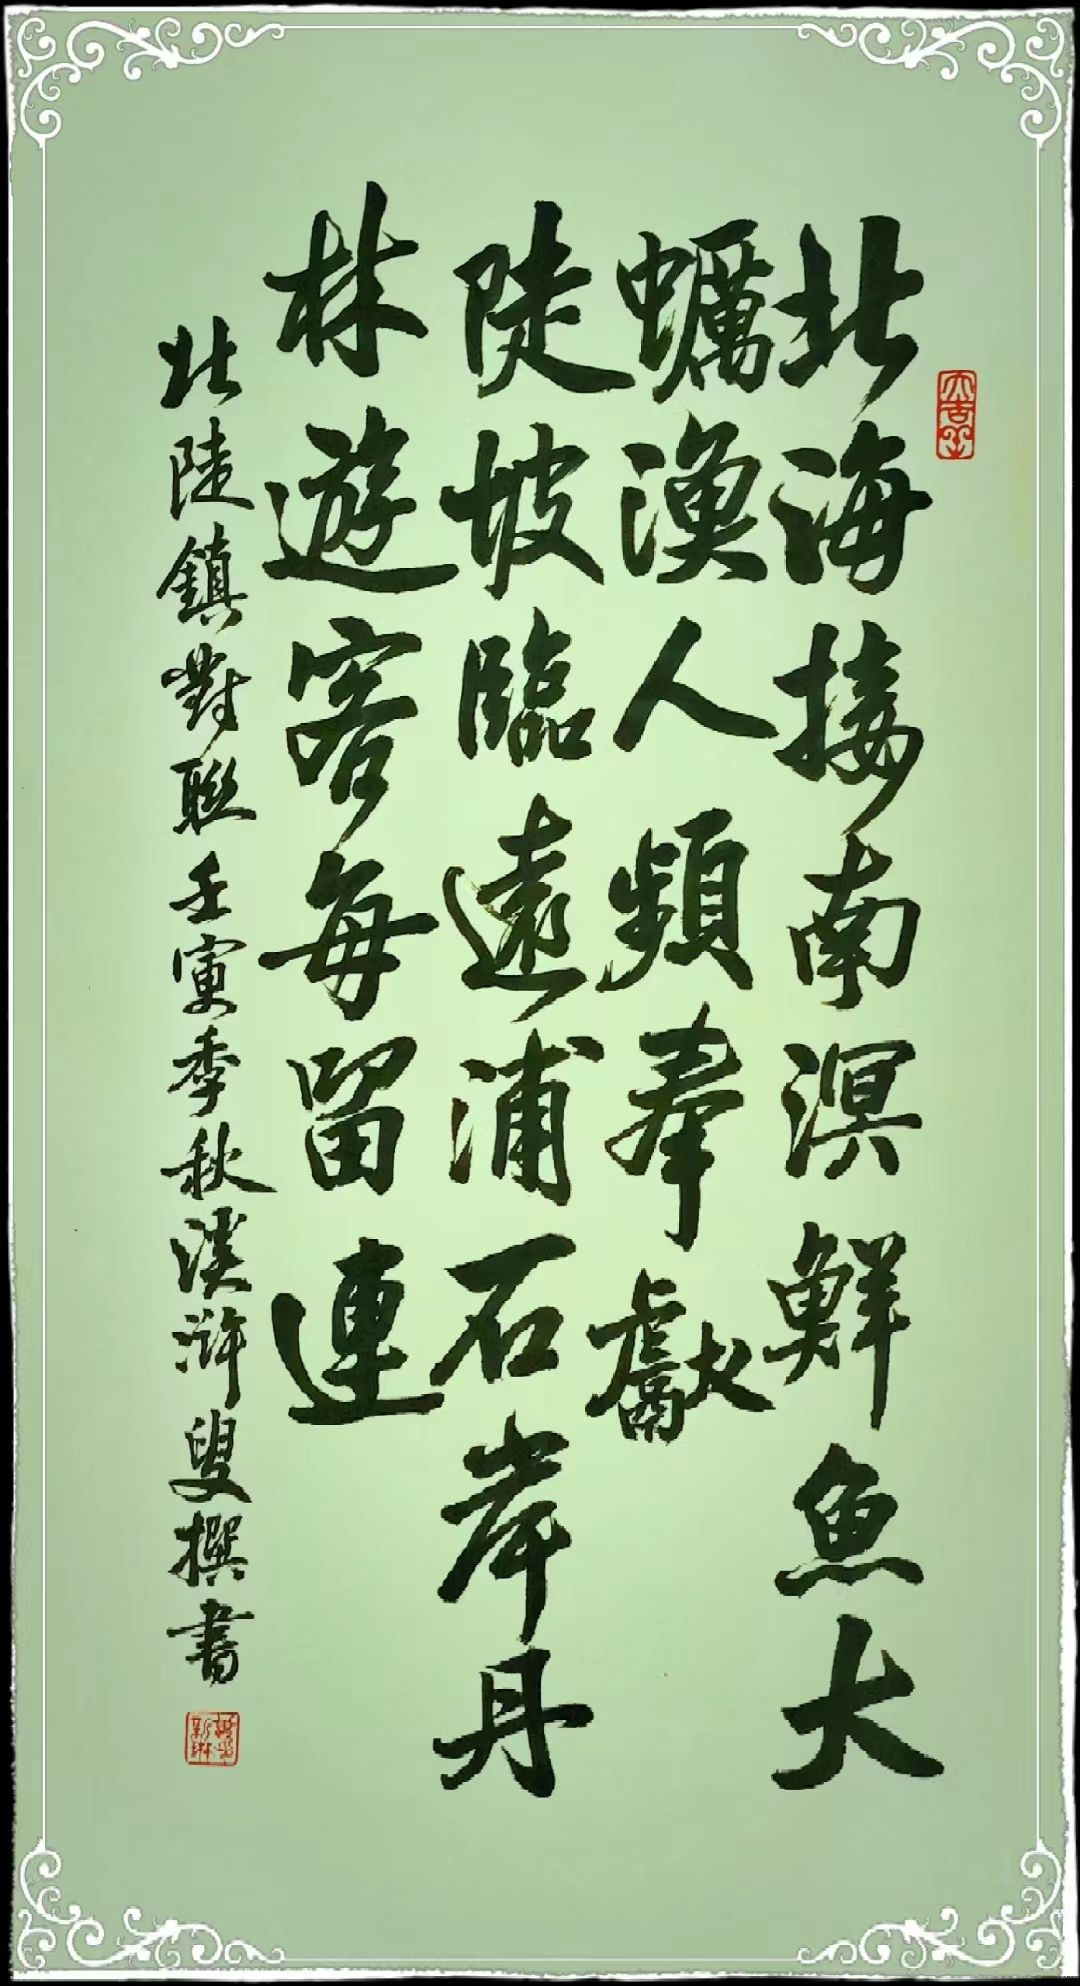 北海接南溟鮮魚大
蠣漁人頻奉獻
陡坡臨遠浦石岸丹
林遊客每留連
北陡鎮對聯壬寅季秋溪滸叟撰書